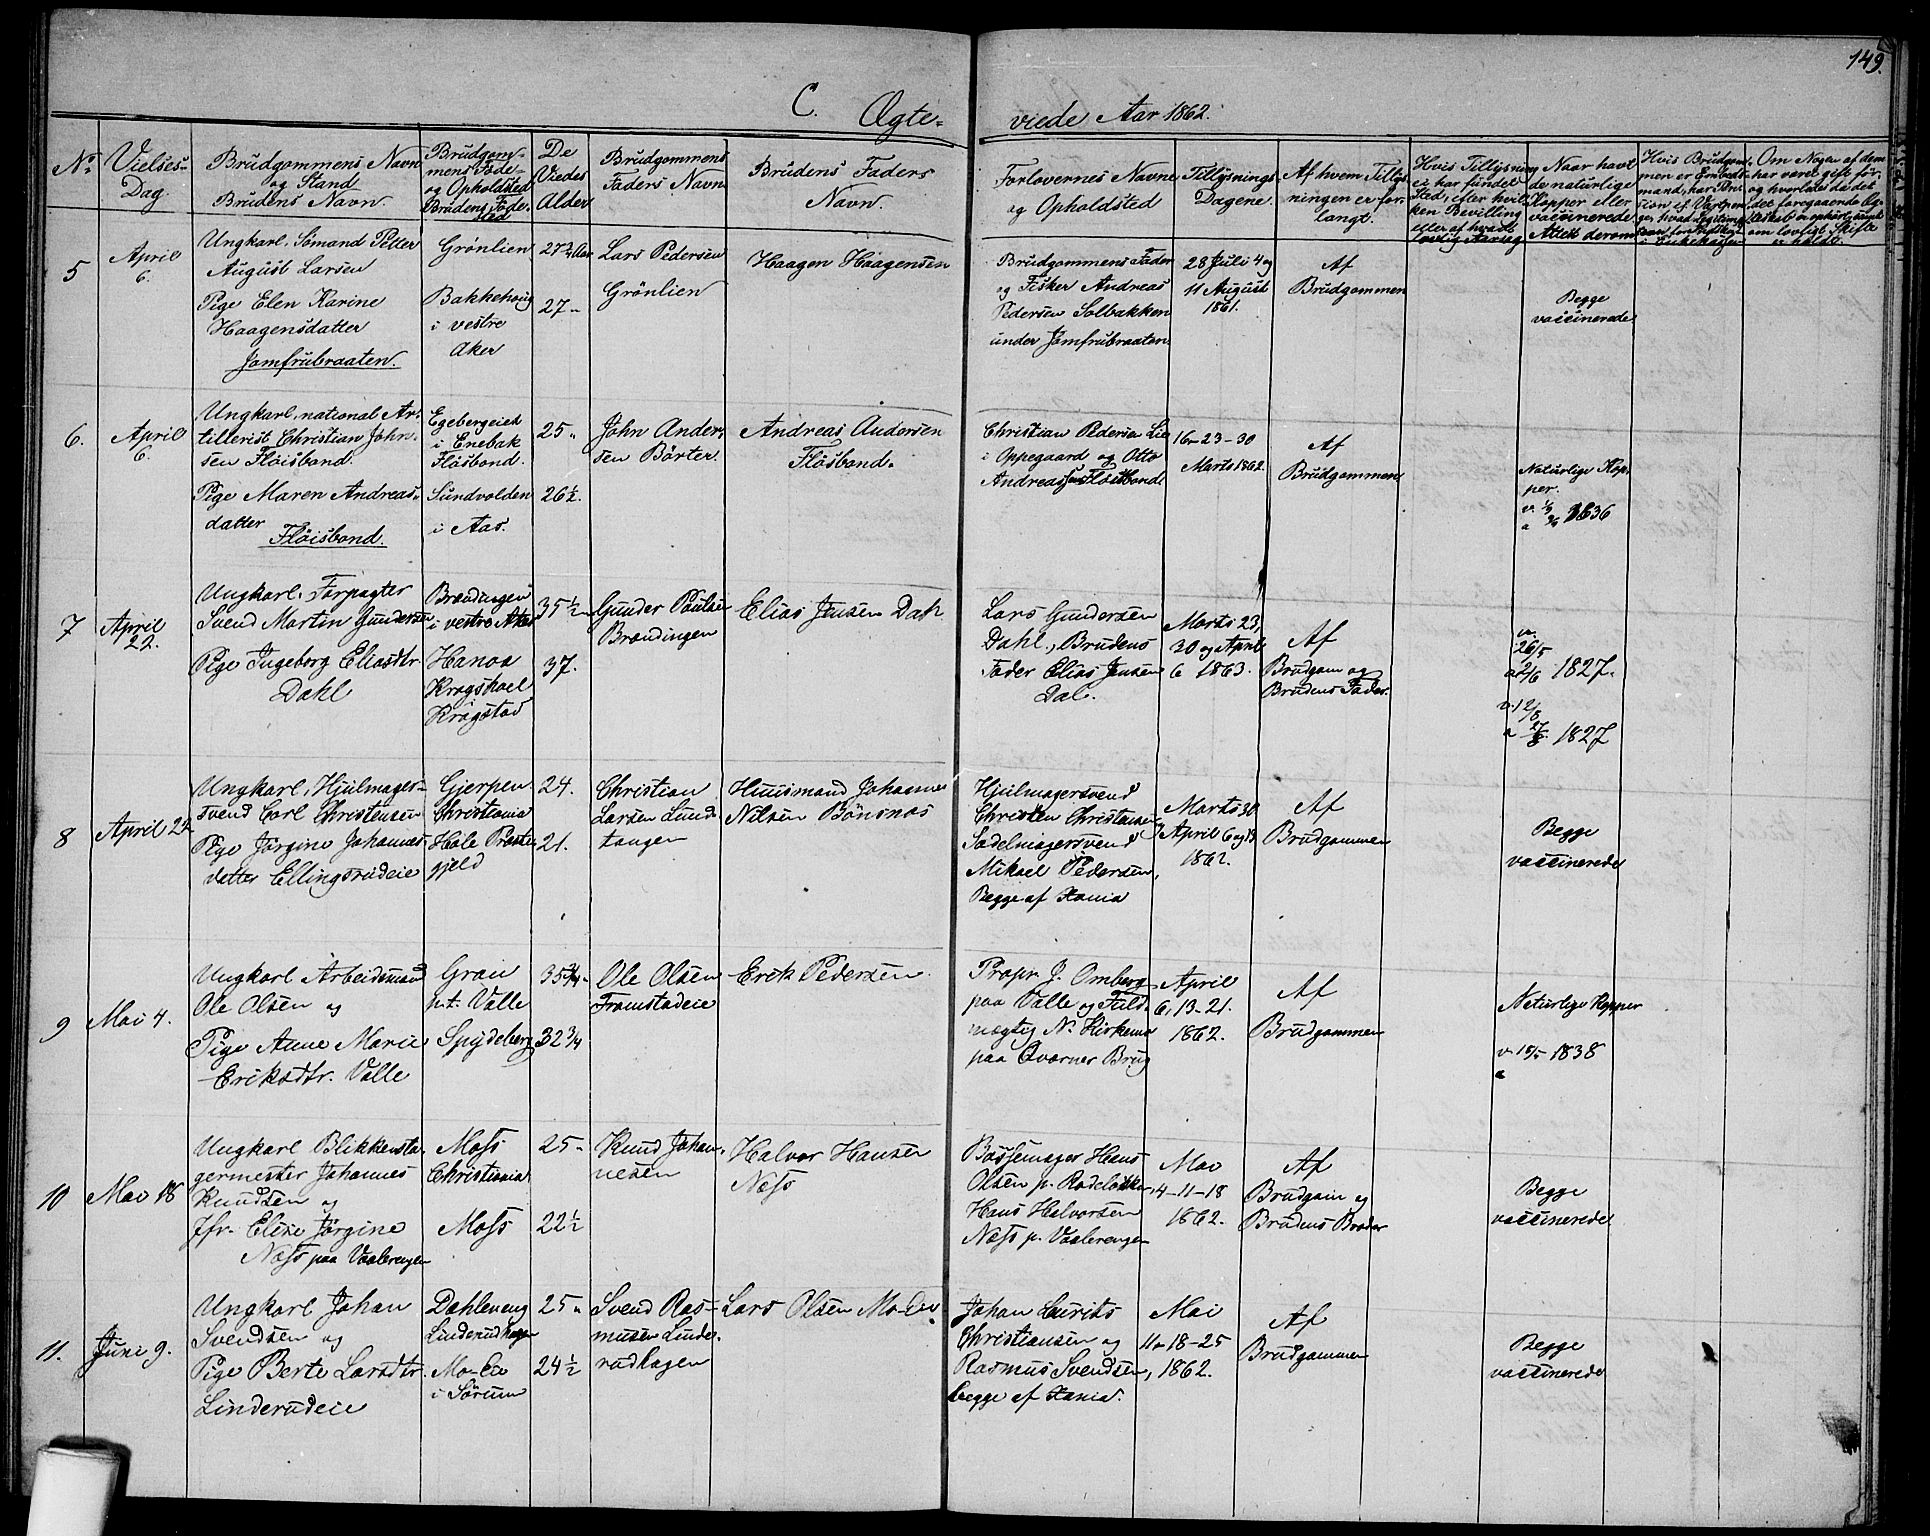 149.
C. Ægte-
viede Aar 1862.
No
Vielses-
Dag
Brudgommens Navn
og Stand
Brudens Navn
Brudgom-
mens Føde-
og Opholdsted
Brudens Føde-
sted
De
Viedes
Alder
Brudgommens
Faders Navn
Brudens Faders
Navn
Forlovernes Navne
og Opholdsted
Tillysnings
Dagene.
Af hvem Tillys-
ningen er for-
langt.
Hvis Tillysning
ei har fundet
Sted, efter hvil-
ken Bevilling
eller af hvad
lovlig Aarsag
Naar havt
de naturlige
Kopper eller
vaccinerede
Attest derom
Hvis Brudgom-
men er
mand, har
sion
Om Nogen af dem
har været gift før,
og hvorledes da det
det foregaaende Æg-
teskab er ophørt, samt
om lovligt Skifte
er holdt.
5
April
6.
Ungkarl, Sømand Petter
August Larsen
Pige Elen Karine
Haagensdatter
Jomfrubraaten.
Grønlien
Bakkehoug
i vestre
Aker
27¾ Aar
27 "
Lars Pedersen
Grønlien
Haagen Haagensen
Brudgommens Fader
og Fisker Andreas
Pedersen Solbakken
under Jomfrubraaten.
28 Juli 4 og
11 August
1861.
Af
Brudgommen
Begge
vaccinerede
6.
April
6.
Ungkarl, national Ar-
tillerist Christian John-
sen Fløisbond.
Pige Maren Andreas-
datter
Fløisbond.
Egebergeiet
i Enebak
Fløsbond.
Sundvolden
i Aas.
25 "
26½.
John Ander-
sen Børter.
Andreas Andersen
Fløsbond.
Christian Pedersen Lie
i Oppegaard og Otto
Andreassen Fløsbond
16-23-30
Marts 1862.
Af
Brudgommen
Naturlige Kop-
per.
1836
7
April
22.
Ungkarl. Forpagter
Svend Martin Gundersen
Pige Ingeborg Eliasdtr.
Dahl
Brændingen
i vestre Aker
Hanoa
Kragstad
35½
37.
Gunder Poulsen
Brændingen
Elias Jensen Dah
Lars Gundersen
Dahl, Brudens
Fader Elias Jensen
Dal.
Marts 23,
30 og April
6 1863.
Af
Brudgom og
Brudens Fader.
v.
26/5
a 2/6 1827.
v. 12/8
a 27/8 1827
8
April 22
Ungkarl, Hjulmager-
svend Carl Christensen
Pige Jørgine Johannes-
datter Ellingsrudeie
Gjerpen
Christiania
Hole Præste-
gjeld
24.
21.
Christian
Larsen Lund-
tangen
Huusmand Johannes
Nilsen Bønsnæs
Hjulmagersvend
Christen Christensen
Sadelmagersvend
Mikael Pedersen,
Begge af Xania
Marts 30
April 6 og 13
1862.
Af
Brudgommen
Begge
vaccinerede
9
Mai 4.
Ungkarl Arbeidsmand
Ole Olsen og
Pige Anne Marie
Eriksdtr. Valle
Gran
p.t. Valle
Spydeberg
35¾
32¾
Ole Olsen
Framstadeie
Erik Pedersen.
Propr. J. Omberg
paa Valle og Fuld-
mægtig N. Kirkemo
paa Qværner Brug
April
6, 13-21.
1862.
Af
Brudgommen
Naturlige Kopper
v. 18/5 1838
a
10
Mai 18
Ungkarl Blikkensla-
germester Johannes
Knudsen og
Jfr. Elise Jørgine
Næss paa Vaalerengen
Moss
Christiania
Moss
25 "
22½
Knud Johan-
nesen
Halvor Hansen
Næss
Bøssemager Hans
Olsen p. Rodeløkken
Hans Halvorsen
Næss p. Vaalerengen
Mai
4-11-18
1862.
Af
Brudgom og
Brudens Broder
Begge
vaccinerede
11.
Juni 9.
Ungkarl Johan
Svendsen og
Pige Berte Larsdtr.
Linderudeie
Dahleneng
Linderudhagen
Mo-Eie
i Sørum
25 "
24½
Svend Ras-
musen Linde-
rudhagen
Lars Olsen Mo-Eie
Johan Laurits
Christiansen og
Rasmus Svendsen,
begge af Xania.
Mai
11-18-25
1862.
Af
Brudgommen
Begge
vaccinerede